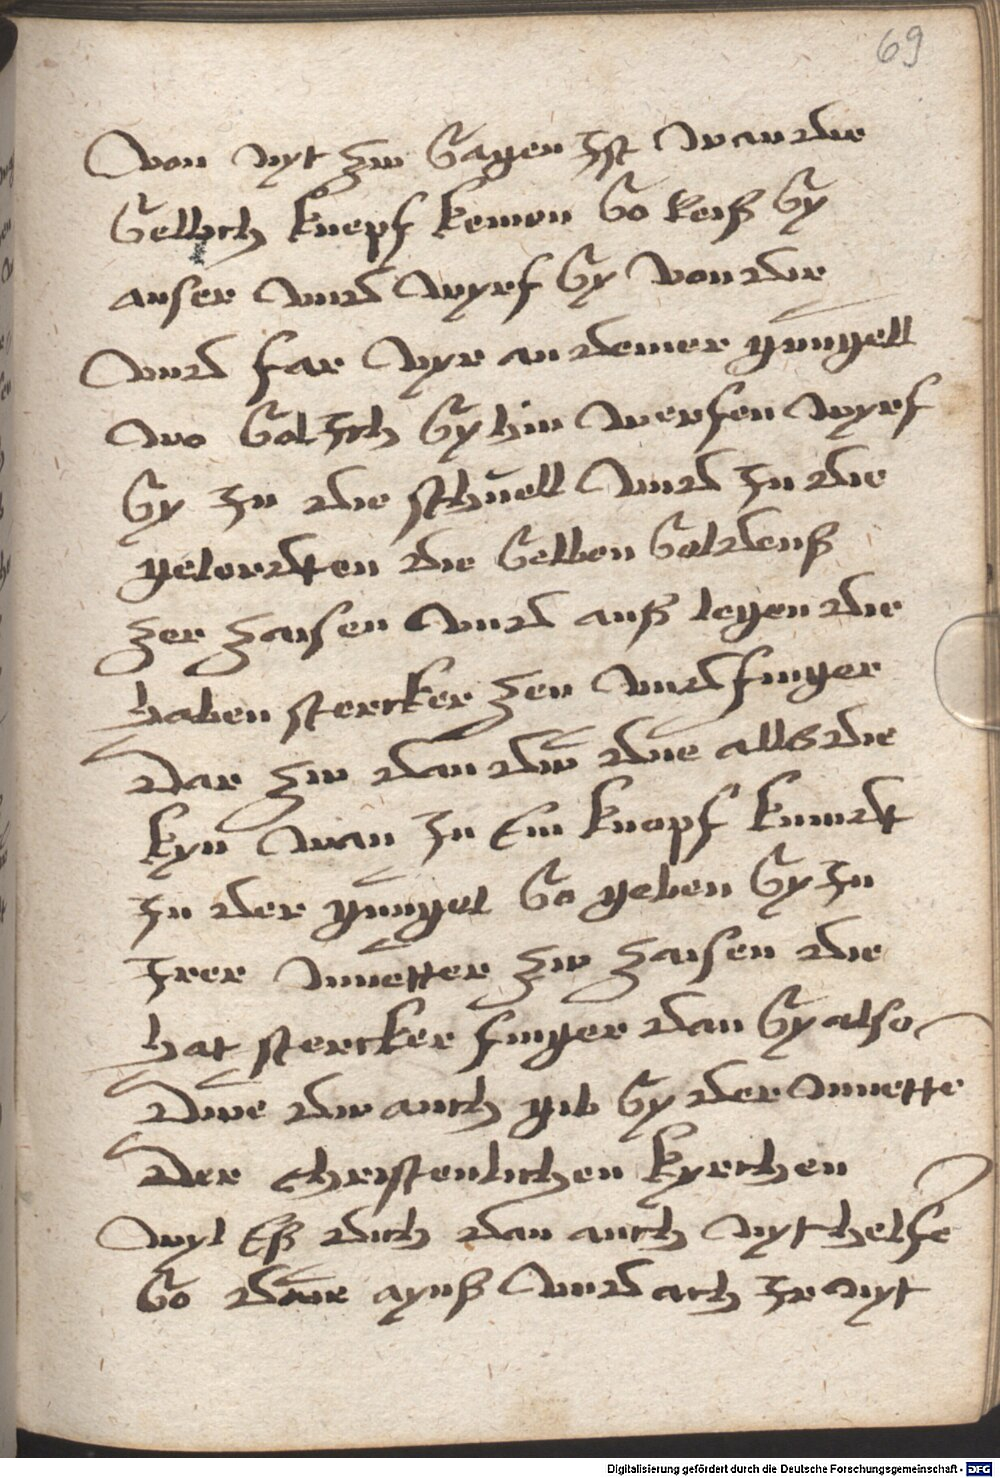 69
von nyt zu sagen ist wan die
selbich knepf kemen so reiß sy
auser vnd wyrf sy von dir
vnd far wyr an deiner gungell
wo sol ich sy hin werfen wyrf
sy in die schuell vnd in die
gelerdten die selben soldenß
zer zausen vnd auß legen die
haben stercker zen vnd finger
dar zu dan du due alls die
kyn wan in ein knopf kumdt
in der gungel so geben sy in
irer muetter zu zausen die
hat stercker finger dan sy also
due du auch gib sy der muetter
der christenlichen kyrchen
wyl eß dich dan auch nyt helfe
so due aynß vnd ach ir nyt
Digitalisierung gefördert durch die Deutsche Forschungsgemeinschaft - DFG